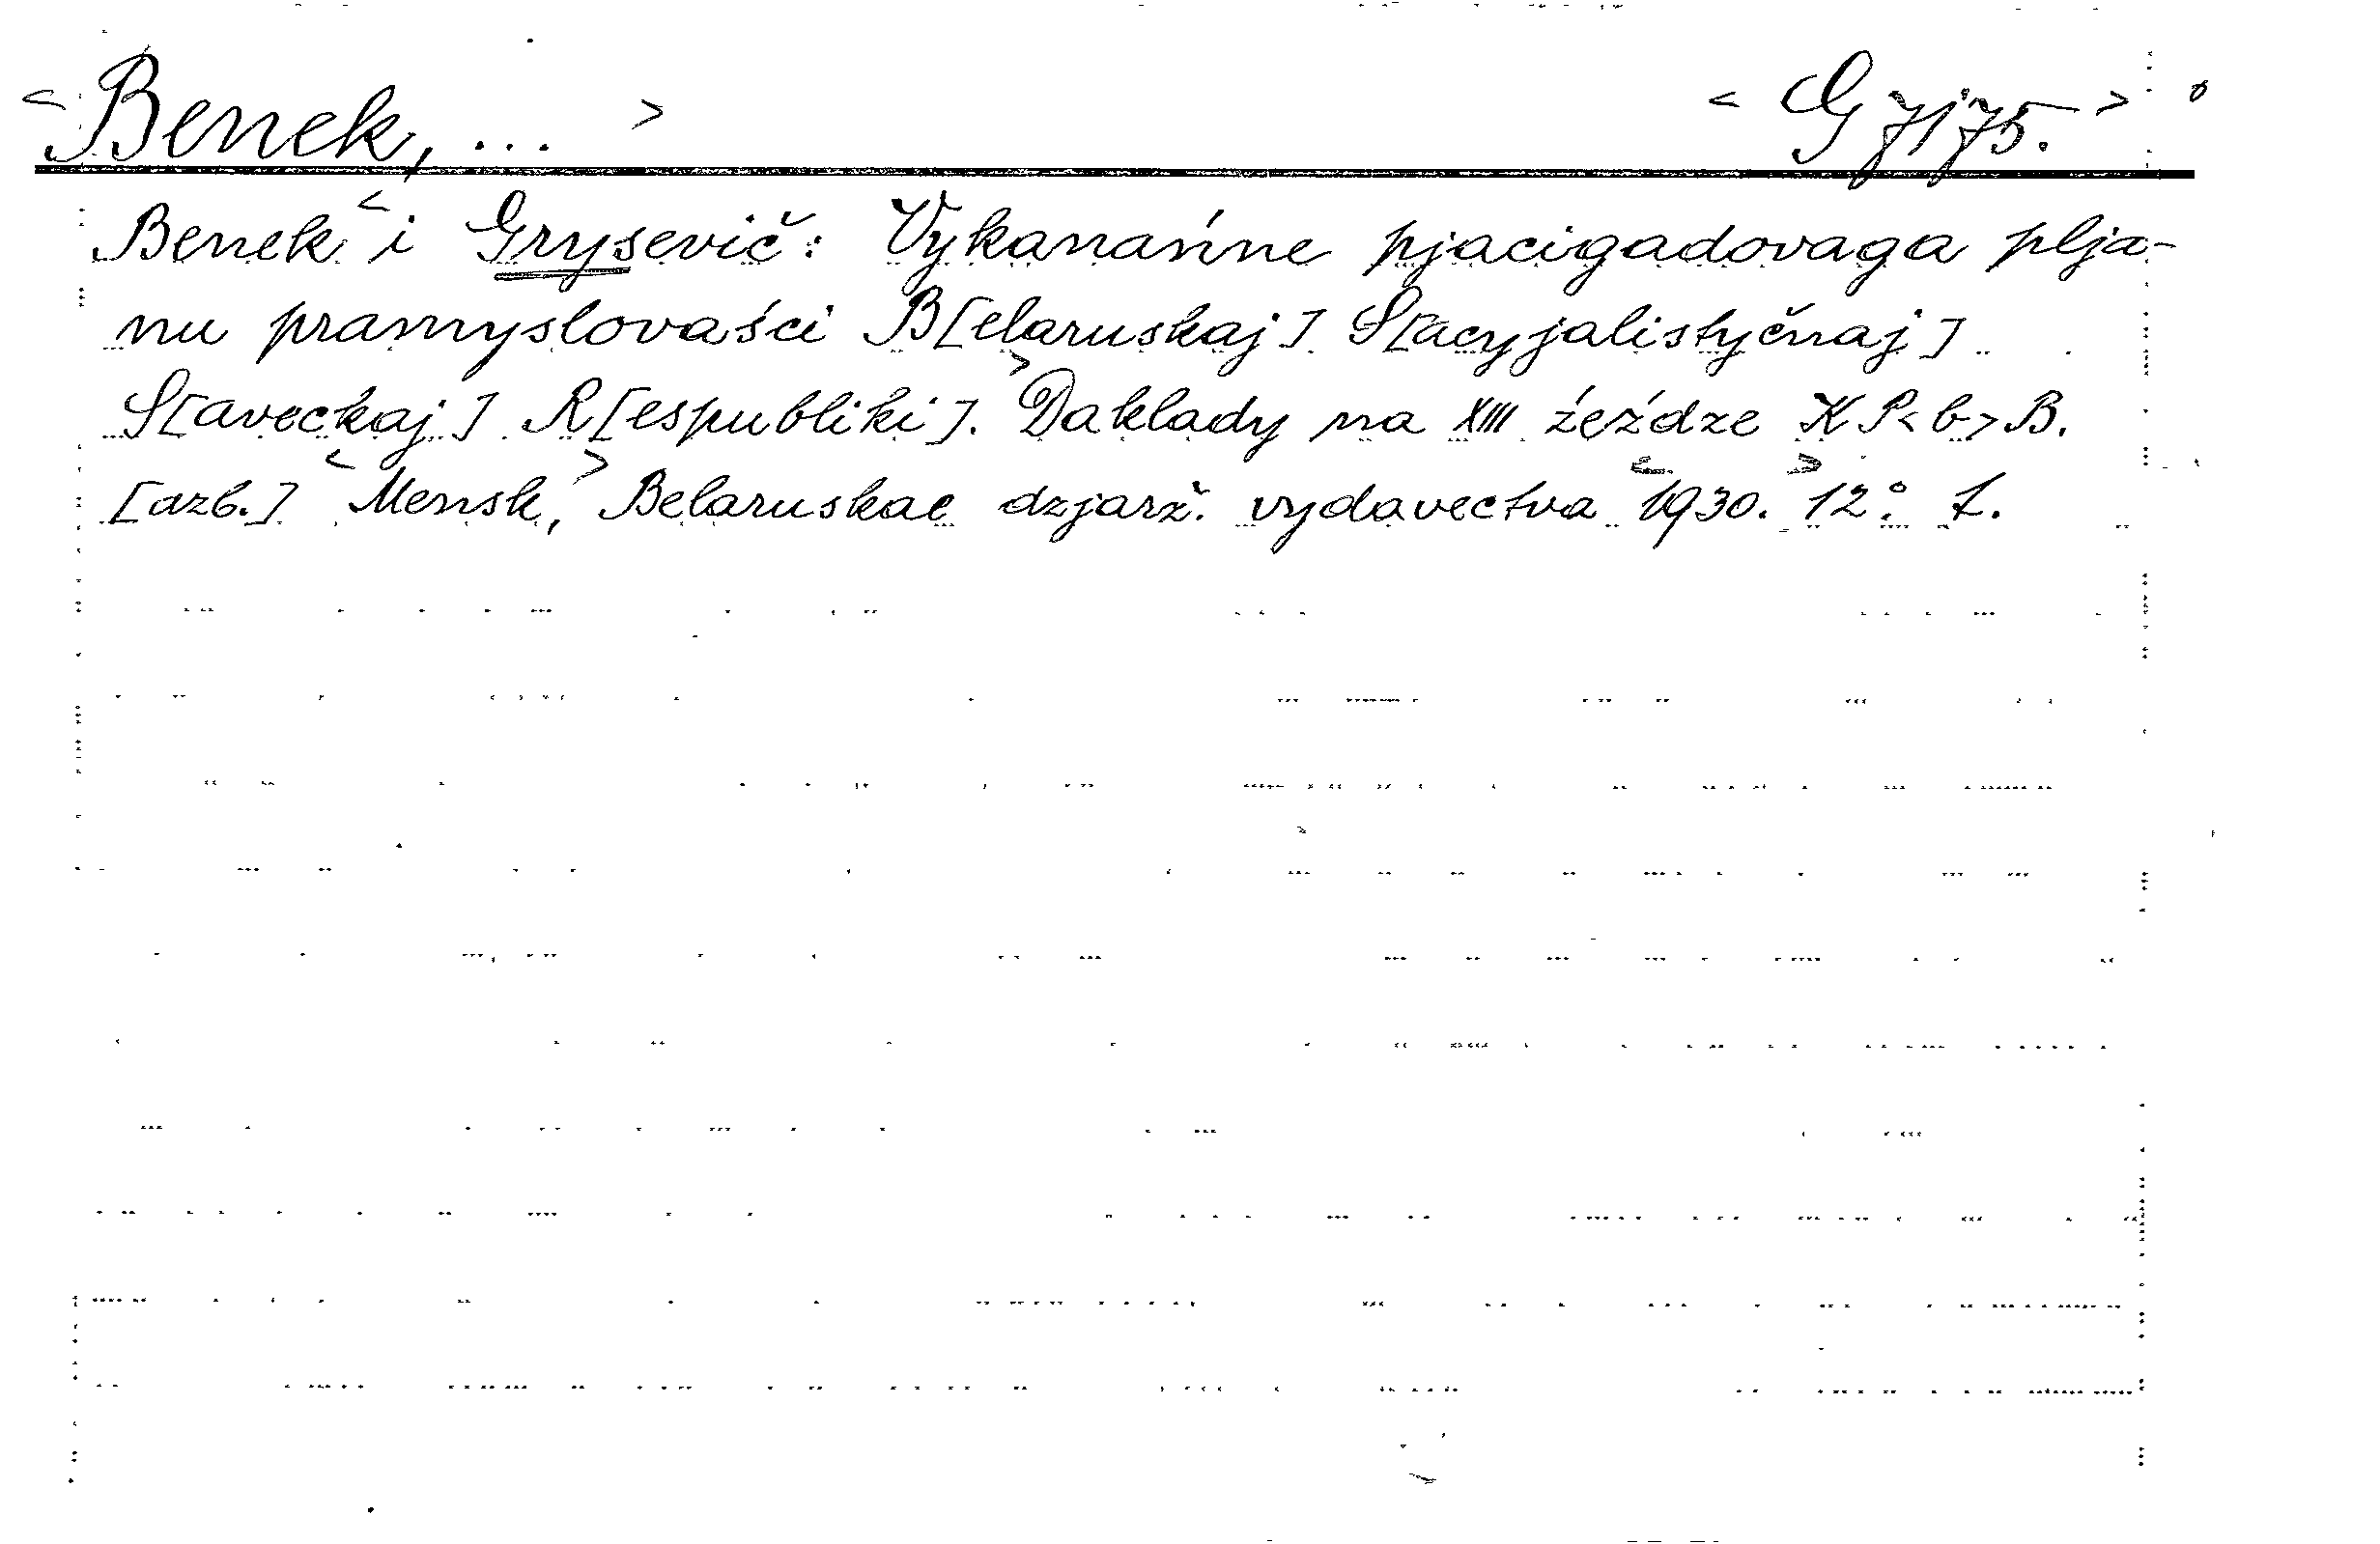 <Benek, ...> <G 7175.>
Benek <i Grysevič: Vykanańne pjacigadovaga plja-
nu pramyslovaści B[elaruskaj] S[acyjalistyčnaj]
S[aveckaj] R[espubliki].> Daklady na XIII źeździe KP<b>B.
[azb.] <Mensk,> Belaruskae dzjarž. vydavectva <1930.> 12.° 1.